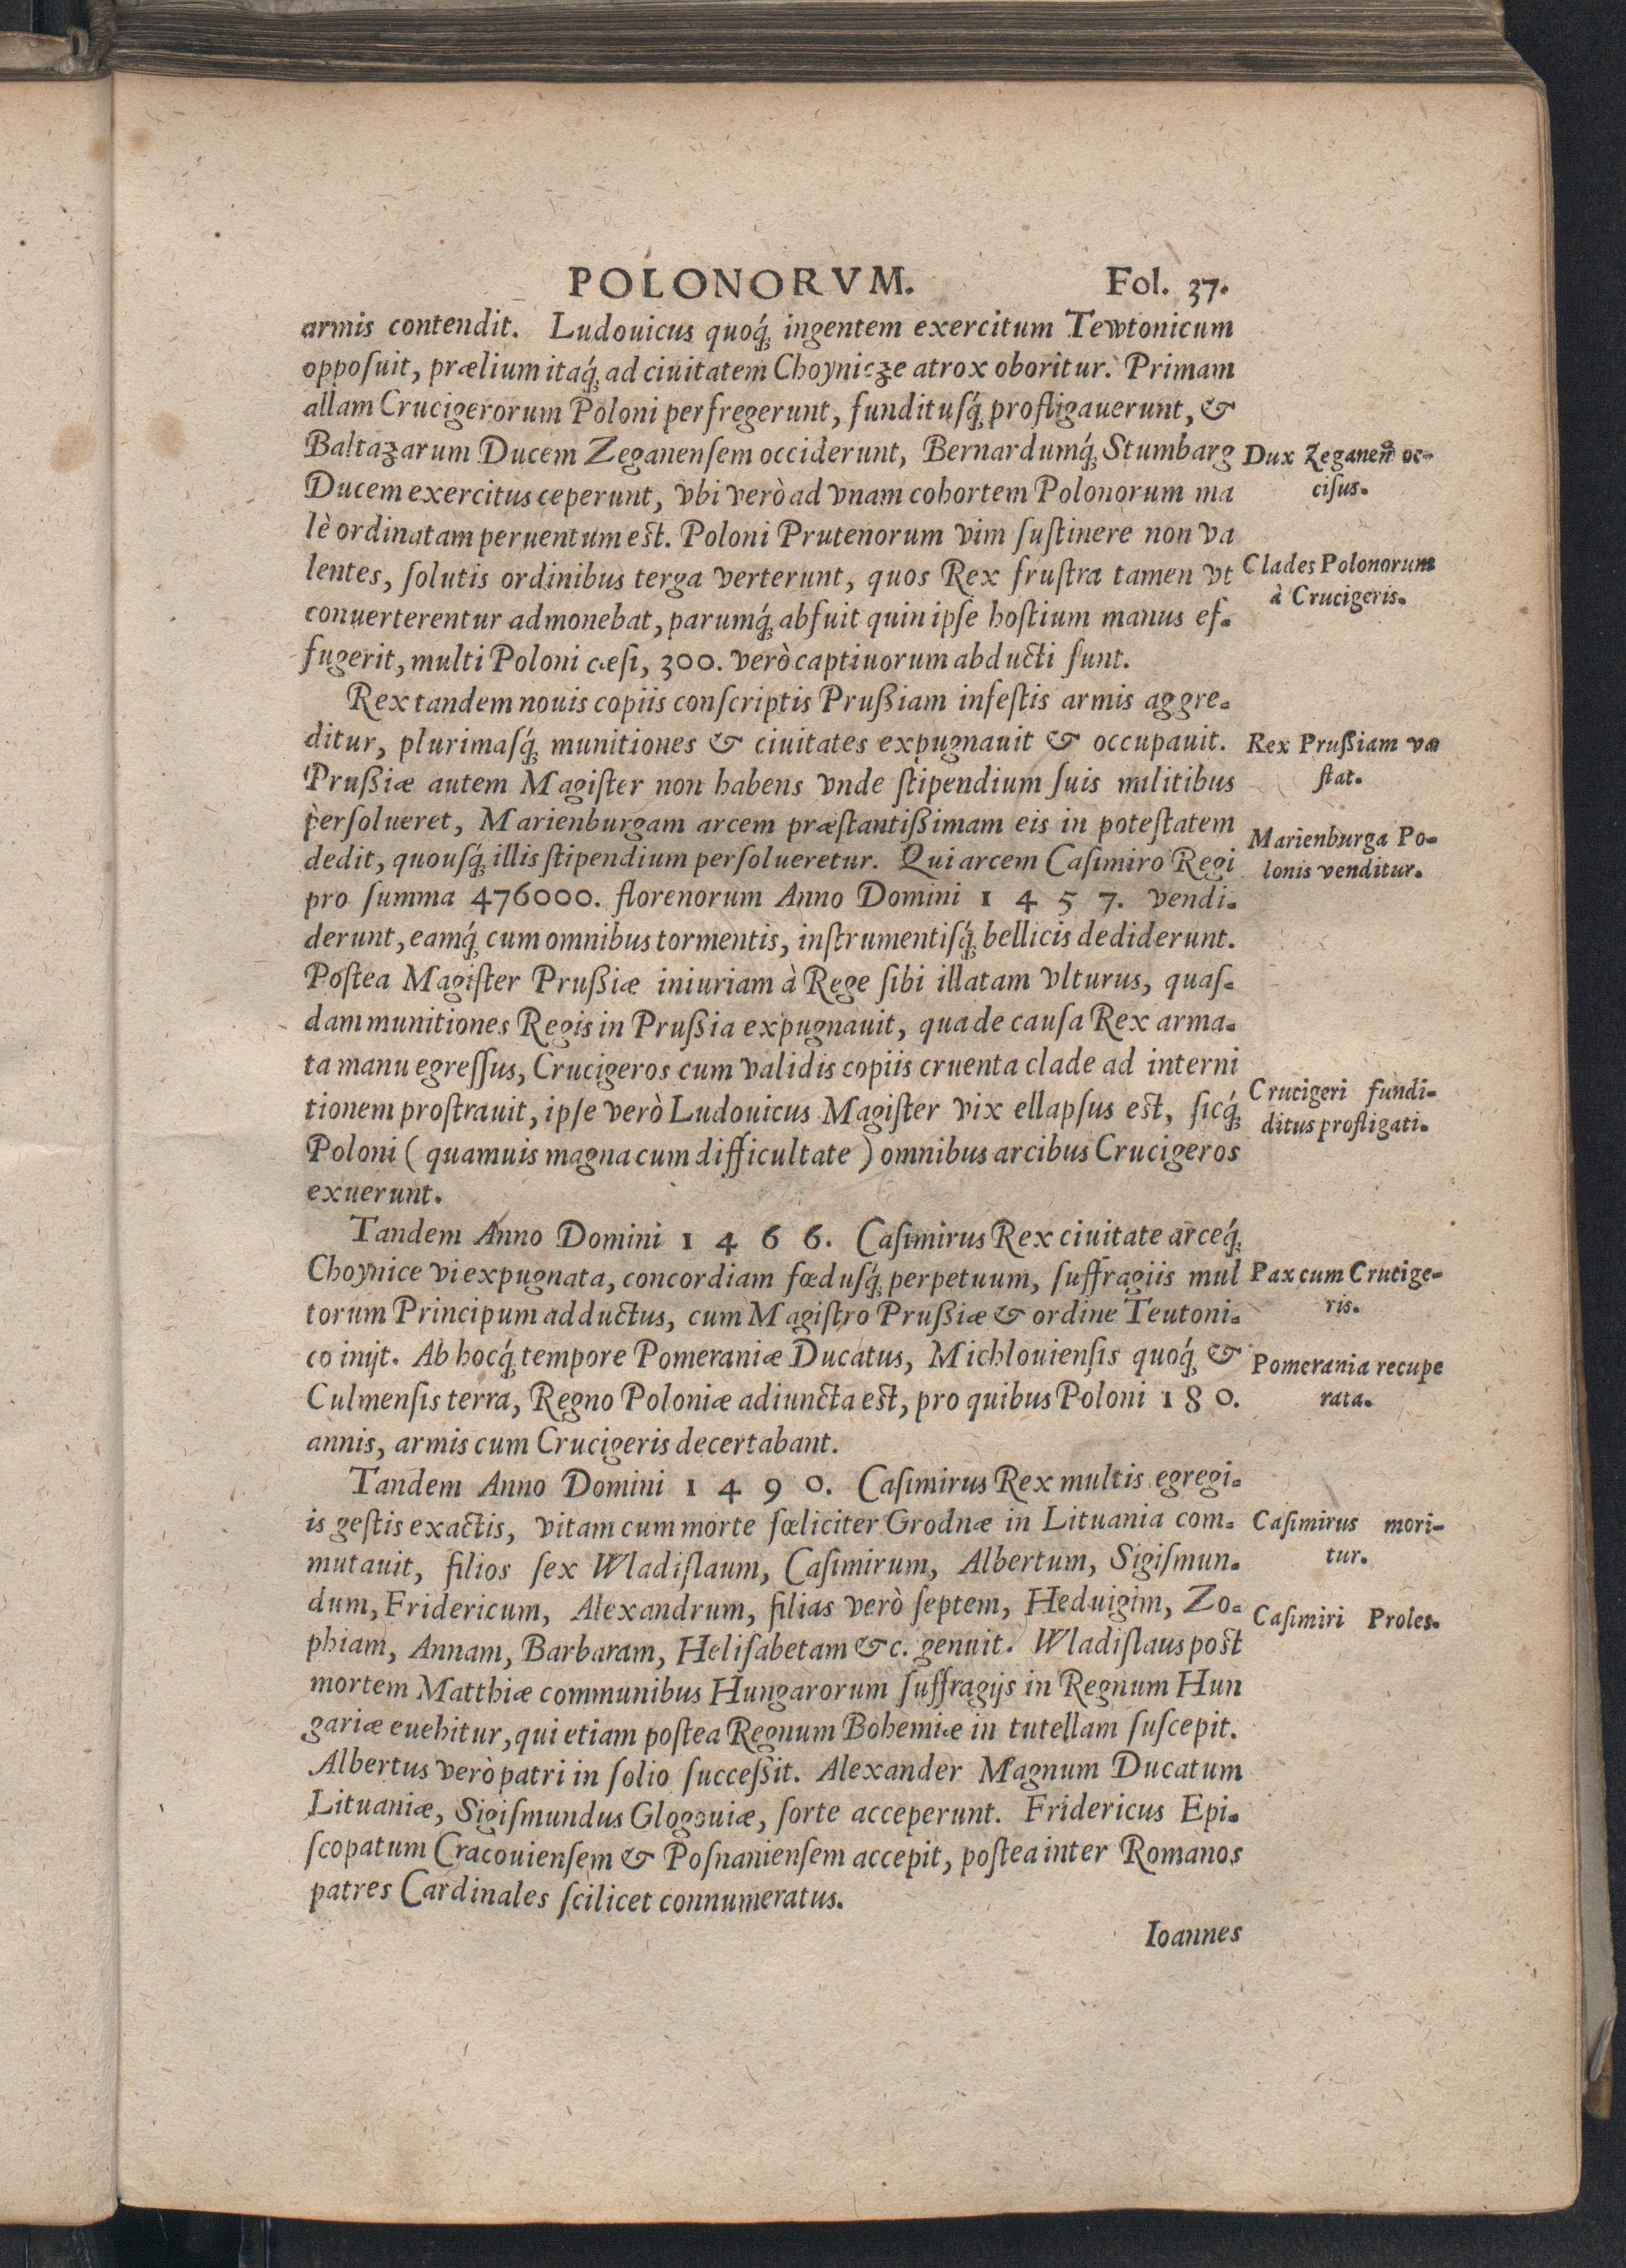 POLONORVM. Fol. 37.
armis contendit. Ludouicus quoq́ꝫ ingentem exercitum Tewtonicum
opposuit, præliumitaq́ꝫ ad ciuitatem Choynicze atrox oboritur. Primam
allam Crucigerorum Poloni perfregerunt, funditusq́ꝫ profligauerunt, &
Baltazarum Ducem Zeganenſem occiderunt, Bernardumq́ꝫ Stumbarg
Dux Zeganenꝰ oc-
ciſus.
Ducem exercitus ceperunt, vbi verò ad vnam cohortem Polonorum ma
lè ordinatam peruentum est. Poloni Prutenorum vim ſuſtinere non va
lentes, ſolutis ordinibus terga verterunt, quos Rex fruſtra tamen vt
Clades Polonorum
à Crucigeris.
conuerterentur admonebat, parumq́ꝫ abfuit quin ipſe hoſtium manus ef-
fugerit, multi Poloni cæſi, 300. verò captiuorum abducti ſunt.
Rex tandem nouis copiis conſcriptis Prußiam infeſtis armis aggre-
ditur, plurimaſq́ꝫ munitiones & ciuitates expugnauit & occupauit.
Rex Prußiam va
ſtat.
Prußiæ autem Magiſter non habens vnde ſtipendium ſuis militibus
perſolueret, Marienburgam arcem præſtantißimam eis in poteſtatem
Marienburga Po-
lonis venditur.
dedit, quouſq́ꝫ illis ſtipendium perſolueretur. Qui arcem Caſimiro Regi
pro ſumma 476000. florenorum Anno Domini 1 4 5 7. vendi-
derunt, eamq́ꝫ cum omnibus tormentis, inſtrumentiſq́ꝫ bellicis dediderunt.
Poſtea Magiſter Prußiæ iniuriam à Rege ſibi illatam vlturus, quaſ-
dam munitiones Regis in Prußia expugnauit, qua de cauſa Rex arma-
ta manu egreſſus, Crucigeros cum validis copiis cruenta clade ad interni
Crucigeri fundi-
ditus profligati.
tionem proſtrauit, ipſe verò Ludouicus Magiſter vix ellapſus est, ſicq́ꝫ
Poloni ( quamuis magna cum difficultate ) omnibus arcibus Crucigeros
exuerunt.
Tandem Anno Domini 1 4 6 6. Caſimirus Rex ciuitate arceq́ꝫ
Choynice vi expugnata, concordiam fœduſq́ꝫ perpetuum, ſuffragiis mul
Pax cum Crucige-
ris.
torum Principum adductus, cum Magiſtro Prußiæ & ordine Teutoni-
co inijt. Ab hocq́ꝫ tempore Pomeraniæ Ducatus, Michlouienſis quoq́ꝫ &
Pomerania recupe
rata.
Culmenſis terra, Regno Poloniæ adiuncta est, pro quibus Poloni 1 8 0.
annis, armis cum Crucigeris decertabant.
Tandem Anno Domini 1 4 9 0. Caſimirus Rex multis egregi-
is geſtis exactis, vitam cum morte fœliciter Grodnæ in Lituania com-
Caſimirus mori-
tur.
mutauit, filios ſex Wladiſlaum, Caſimirum, Albertum, Sigiſmun-
dum, Fridericum, Alexandrum, filias verò ſeptem, Heduigim, Zo-
Caſimiri Proles.
phiam, Annam, Barbaram, Heliſabetam &c. genuit. Wladiſlaus post
mortem Matthiæ communibus Hungarorum ſuffragijs in Regnum Hun
gariæ euehitur, qui etiam poſtea Regnum Bohemiæ in tutellam ſuſcepit.
Albertus verò patri in ſolio ſucceßit. Alexander Magnum Ducatum
Lituaniæ, Sigiſmundus Glogouiæ, ſorte acceperunt. Fridericus Epi-
ſcopatum Cracouienſem & Poſnanienſem accepit, poſtea inter Romanos
patres Cardinales ſcilicet connumeratus.
Ioannes